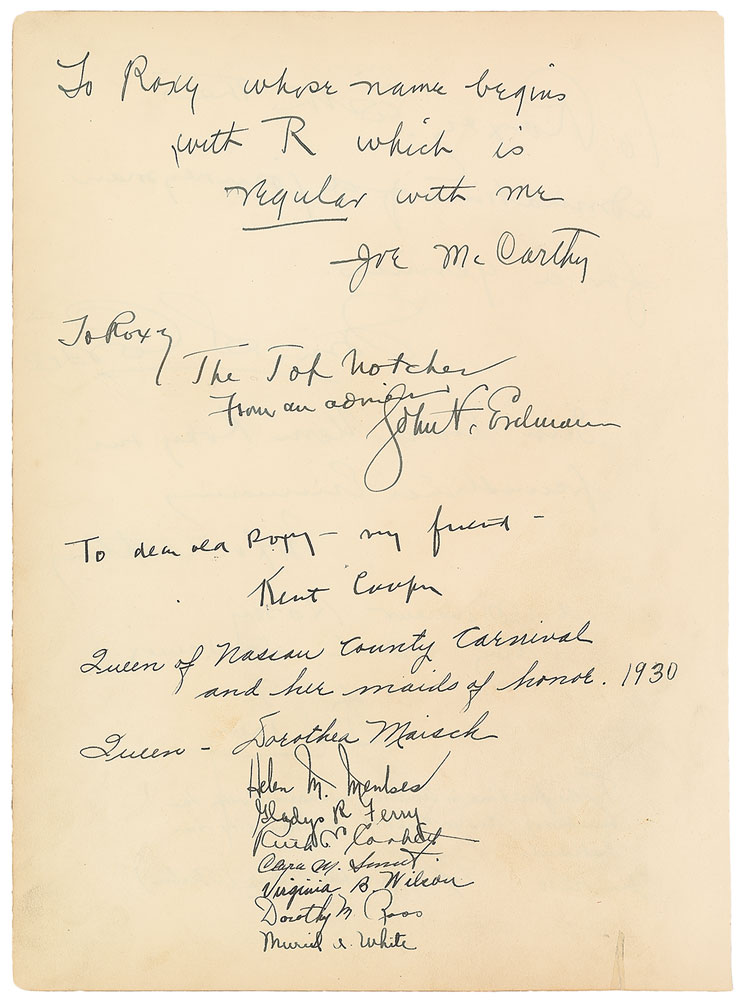 To Roxy whose name begins
with R which is
regular with me
Joe McCarthy
To Roxy
The Top Notcher
From an admirer
John F. Erdmann
To dear old Roxy — my friend —
Kent Cooper
Queen of Nassau County Carnival
and her maids of honor. 1930
Queen - Dorothea Maisch
Helen M.
Gladys R. Ferry
Ruth Corbett
Clara M.
Virginia B. Wilson
Dorothy M. Roos
Muriel White